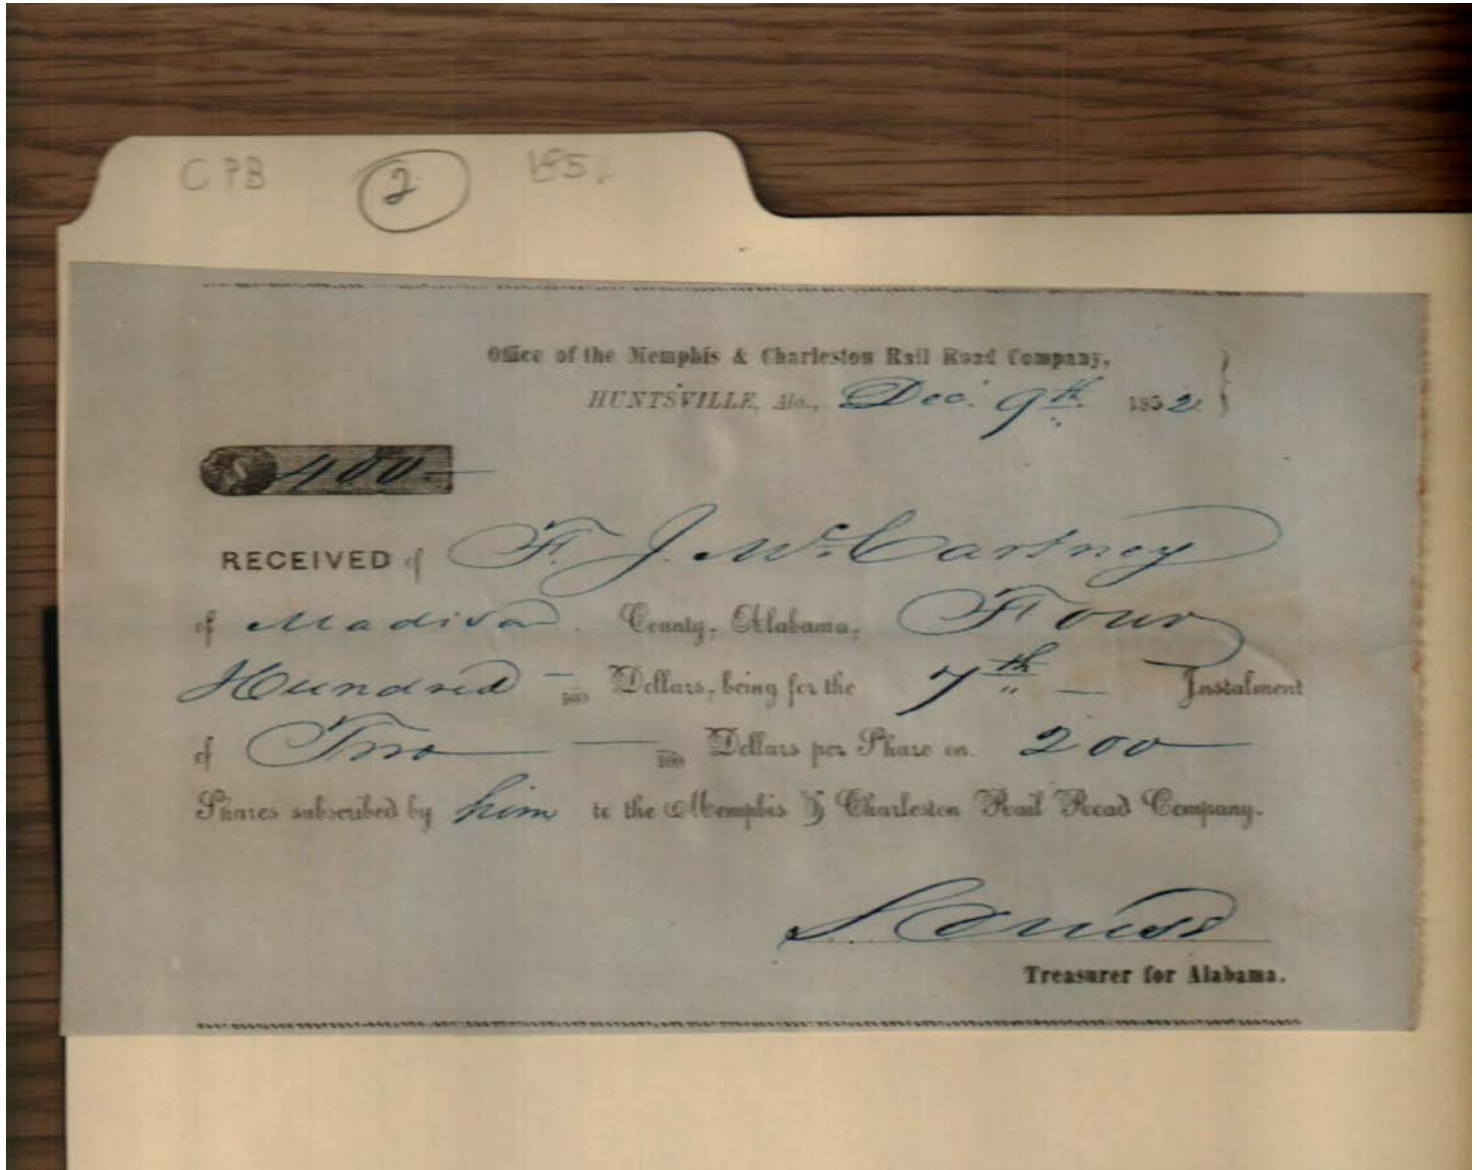 CPB 2 185
Office of the Memphis & Charleston Rail Road Company,
HUNTSVILLE, Ala., Dec. 9th 1852
$ 400.
RECEIVED of F. J. McCartney
of Madison County, Alabama, Four
Hundred 100 Dollars, being for the 7th Instalment
of Two 100 Dollars per Share on 200
Shares subscribed by him to the Memphis & Charleston Rail Road Company.
Treasurer for Alabama.